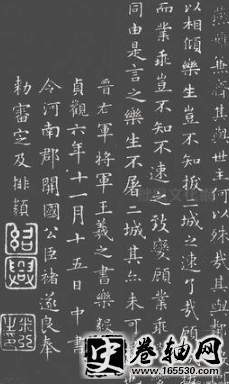 燕雖兼齊其與世主何以殊哉其與鄰敵
以相傾樂生豈不知拔二城之速了哉顧
而業乖豈不知不速之致變顧業乖
同由是言之樂生不屠二城其亦未可
晉右軍將軍王羲之書樂毅
貞觀六年十一月十五日中書
令河南郡開國公臣褚遂良奉
勅審定及排類
紹興
卷轴网
www.165530.com